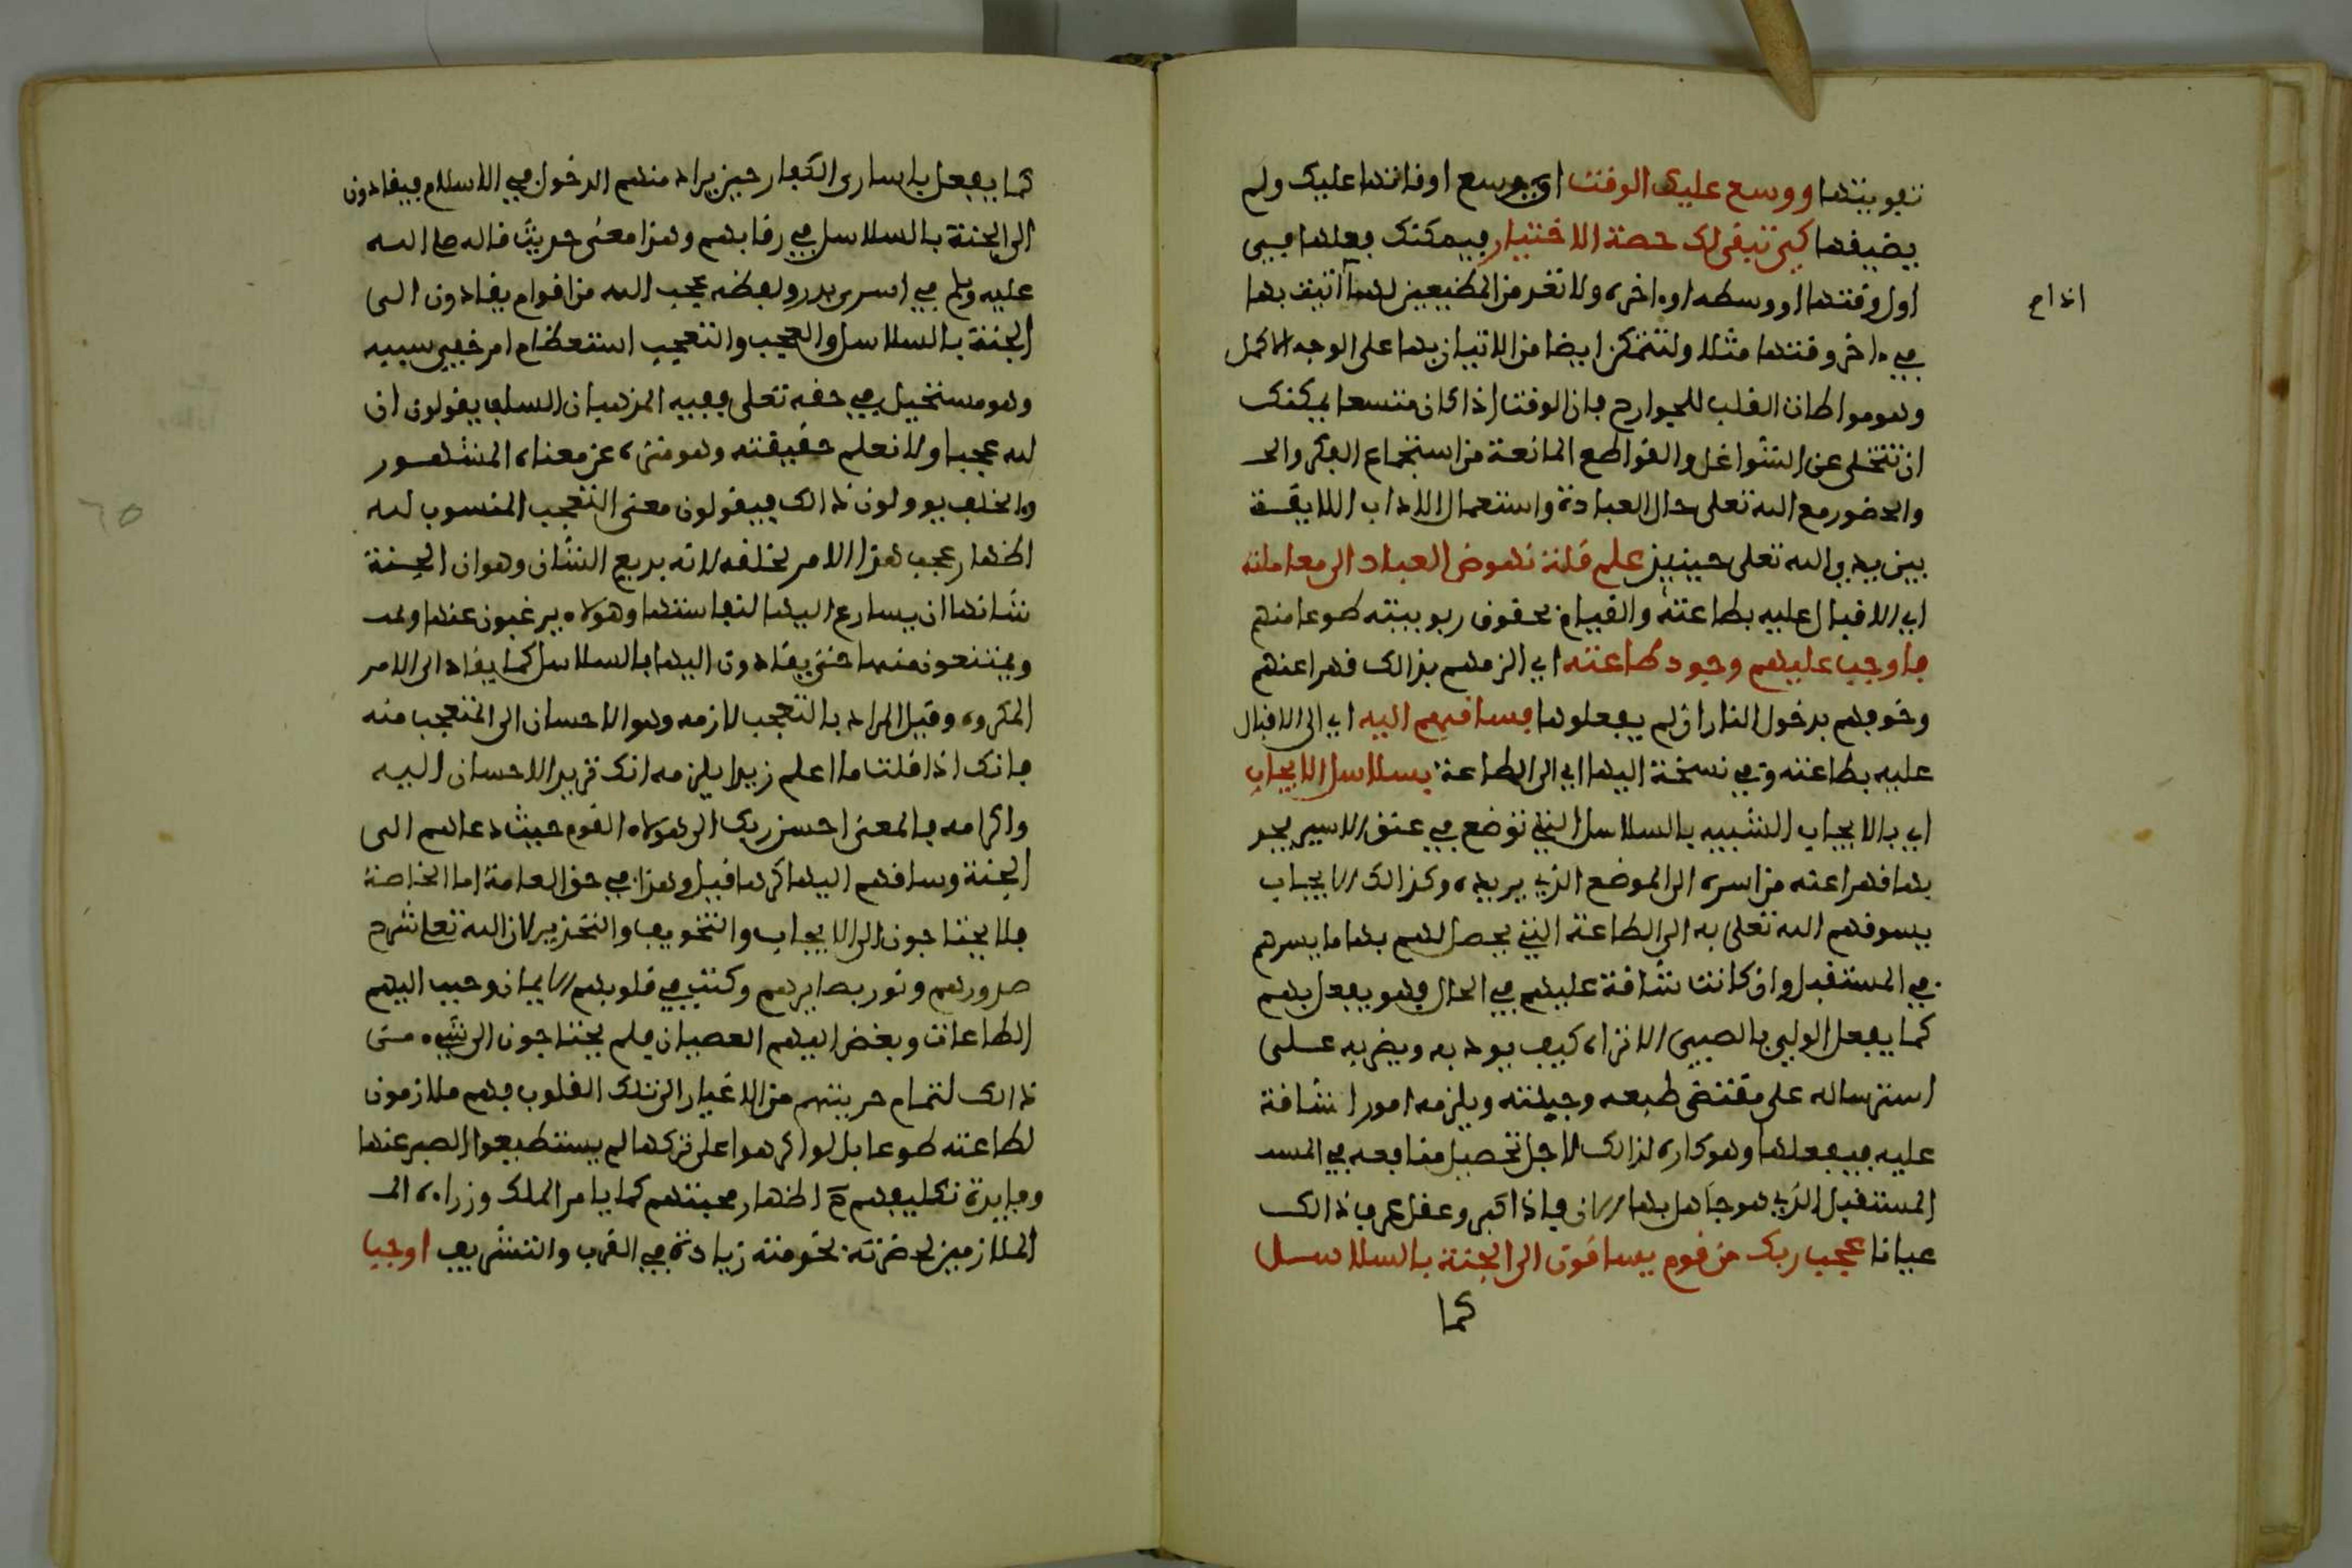 تفويتها ووسع عليك الوقت اي وسع اوقاتها عليك ولم
يضيقها كي تبقى لك حصة الاختيار فيمكنك فعلها في
اول وقتها او وسطه او ءاخره ولا تعد من المضيعين لها اذا اتيت بها
في ءاخر وقتها مثلا ولتتمكن ايضا من الاتيان بها على الوجه الاكمل
وهو مواطاة القلب للجوارح فان الوقت اذا كان متسعا يمكنك
ان تتخلى عن الشواغل والقواطع المانعة من استجماع الفكر والحـ
والحضور مع الله تعلى حال العبادة واستعمال الاداب اللايقة
بين يدي الله تعلى حينيذ علم قلة نهوض العباد الى معاملته
اي الاقبال عليه بطاعته والقيام بحقوق ربوبيته طوعا منهم
فاوجب عليهم وجود طاعته اي الزمهم بذالك قهرا عنهم
وخوفهم بدخول النار ان لم يفعلوها فساقهم اليه اي الى الاقبال
عليه بطاعته وفي نسخة اليها اي الى الطاعة بسلاسل الايجاب
اي بالايجاب الشبيه بالسلاسل التي توضع في عنق الاسير يجر
بها قهرا عنه من اسره الى الموضع الذي يريده وكذالك الايجاب
يسوقهم الله تعلى به الى الطاعة التي يحصل لهم بها ما يسرهم
في المستقبل وان كانت شاقة عليهم في الحال فهو يفعل بهم
كما يفعل الولي بالصبي الا تراه كيف يودبه ويضربه على
استرساله على مقتضى طبعه وجبلته ويلزمه امورا شاقة
عليه فيفعلها وهو كاره لذالك لاجل تحصيل منافعه في المسـ
المستقبل الذي هو جاهل بها الان فاذا كبر وعقل عرف ذالك
عيانا عجب ربك من قوم يساقون الى الجنة بالسلاسل
كما
اذا صح
كما يفعل باسارى الكفار حين يراد منهم الدخول في الاسلام فيقادون
الى الجنة بالسلاسل في رقابهم وهذا معنى حديث قاله صلى الله
عليه وسلم في اسرى بدر ولفظه عجب الله من اقوام يقادون الى
الجنة بالسلاسل والعجب والتعجب استعظام امر خفي سببه
وهو مستحيل في حقه تعلى ففيه المذهبان السلف يقولون ان
لله عجبا ولا نعلم حقيقته وهو منزه عن معناه المشهور
والخلف يوولون ذالك فيقولون معنى التعجب المنسوب لله
اظهار عجب هذا الامر لخلقه لانه بديع الشان وهو ان الجنة
شانها ان يسارع اليها لنفاستها وهولاء يرغبون عنها ويمـ
ويمتنعون منها حتى يقادون اليها بالسلاسل كما يقاد الى الامر
المكروه وقيل المراد بالتعجب لازمه وهو الاحسان الى المتعجب منه
فانك اذا قلت ما اعلم زيدا يلزمه انك تريد الاحسان اليه
واكرامه فالمعنى احسن ربك الى هولاء القوم حيث دعاهم الى
الجنة وساقهم اليها كرها قيل وهذا في حق العامة اما الخاصة
فلا يحتاجون الى الايجاب والتخويف والتحذير لان الله تعلى شرح
صدورهم ونور بصايرهم وكتب في قلوبهم الايمان وحبب اليهم
الطاعات وبغض اليهم العصيان فلم يحتاجون الى شيء من
ذالك لتمام حريتهم من الاغيار التي تلك القلوب فهم ملازمون
لطاعته طوعا بل لو اكرهوا على تركها لم يستطيعوا الصبر عنها
وفايدة تكليفهم ح اظهار محبتهم كما يامر الملك وزراءه الـ
الملازمين لحضرته بخدمته زيادة في القرب والتشريف اوجب
٦٥